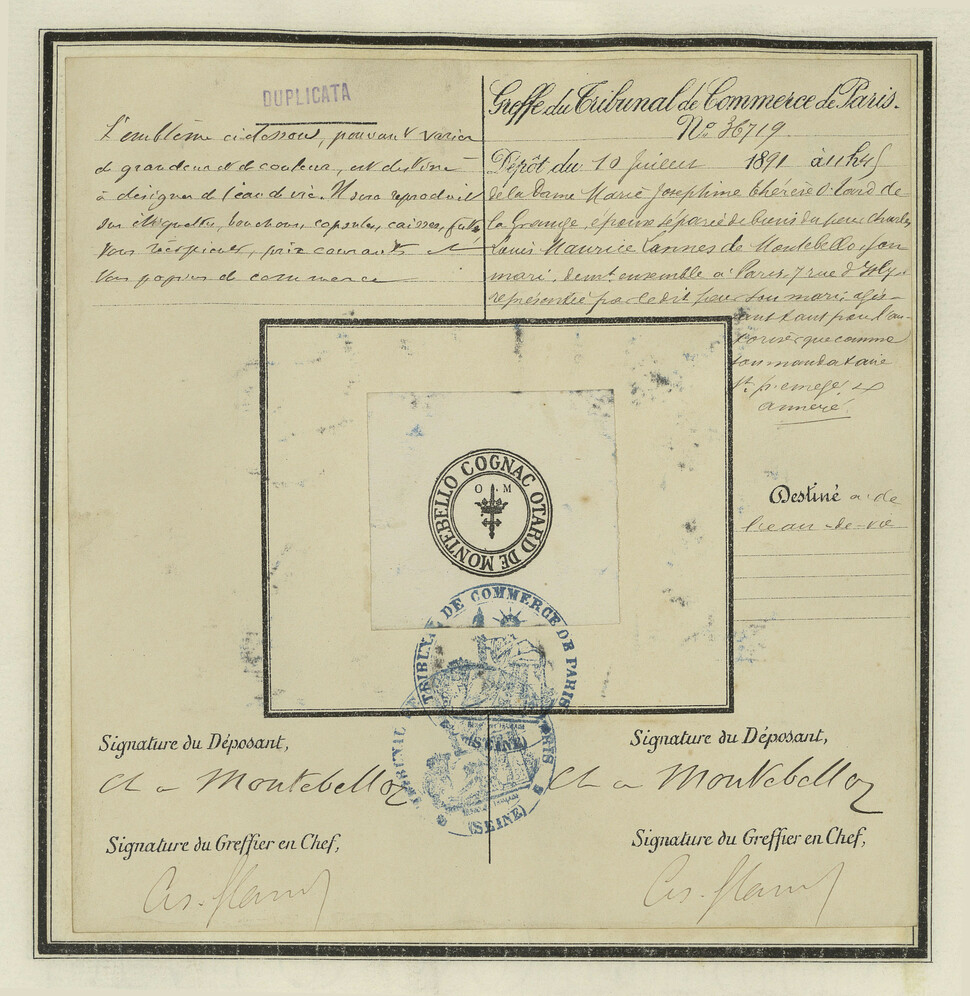 DUPLICATA
L'emblème ci-dessous, pouvant varier
de grandeur et de couleur, est destiné
à désigner de l'eau de vie. Il sera reproduit
sur étiquettes, bouchons, capsules, caisses, fûts
tous récipients, prix courants et
tous papiers de commerce
Greffe du Tribunal de Commerce de Paris.
No. 36719.
Dépôt du 10 Juillet 1891 à 11h
de la Dame Marie Joséphine Thérèse Otard de
la Grange, épouse séparée de biens du sieur Charles
Louis Maurice Lannes de Montebello, son
mari, demt. ensemble à Paris, 7 rue d'
représentée par le dit sieur son mari, agis-
sant tant pour l'au-
toriser que comme
son mandataire
annexé.
COGNAC OTARD DE MONTEBELLO
O. M
Destiné à de
l'eau-de-vie
TRIBUNAL DE COMMERCE DE PARIS
(SEINE)
TRIBUNAL PARIS
(SEINE)
Signature du Déposant,
Signature du Déposant,
Ch de Montebello
Ch de Montebello
Signature du Greffier en Chef,
Signature du Greffier en Chef,